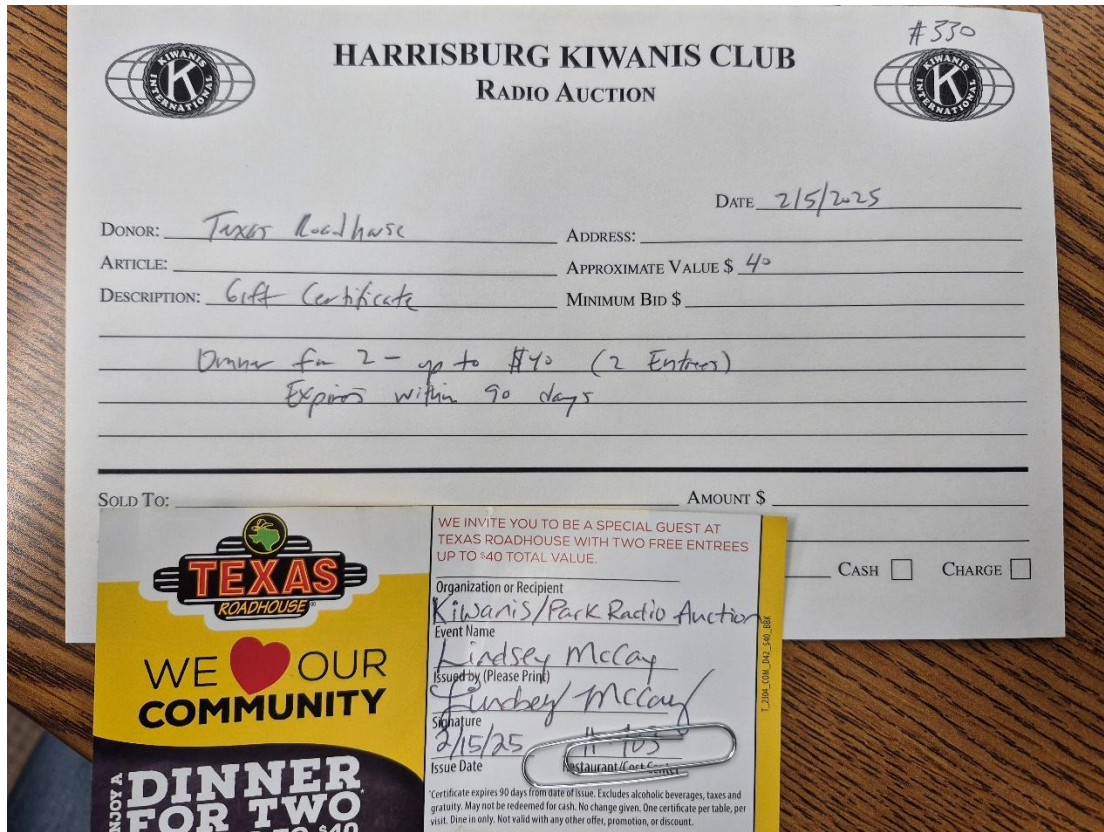 #330
HARRISBURG KIWANIS CLUB
RADIO AUCTION
KIWANIS
K
INTERNATIONAL
KIWANIS
K
INTERNATIONAL
DATE 2/5/2025
DONOR: Texas Roadhouse ADDRESS:
ARTICLE: APPROXIMATE VALUE $ 40
DESCRIPTION: Gift Certificate MINIMUM BID $
Dinner for 2 - up to $40 (2 Entrees)
Expires within 90 days
SOLD TO: AMOUNT $
CASH CHARGE
TEXAS
ROADHOUSE®
WE OUR
COMMUNITY
ENJOY A
DINNER
FOR TWO
$40
WE INVITE YOU TO BE A SPECIAL GUEST AT
TEXAS ROADHOUSE WITH TWO FREE ENTREES
UP TO $40 TOTAL VALUE.
Organization or Recipient
Kiwanis/Park Radio Auction
Event Name
Lindsey McCay
Issued by (Please Print)
Lindsey McCay
Signature
2/15/25
Issue Date Restaurant/Cost Center
*Certificate expires 90 days from date of issue. Excludes alcoholic beverages, taxes and
gratuity. May not be redeemed for cash. No change given. One certificate per table, per
visit. Dine in only. Not valid with any other offer, promotion, or discount.
T_2304_COM_D42_$40_BBK